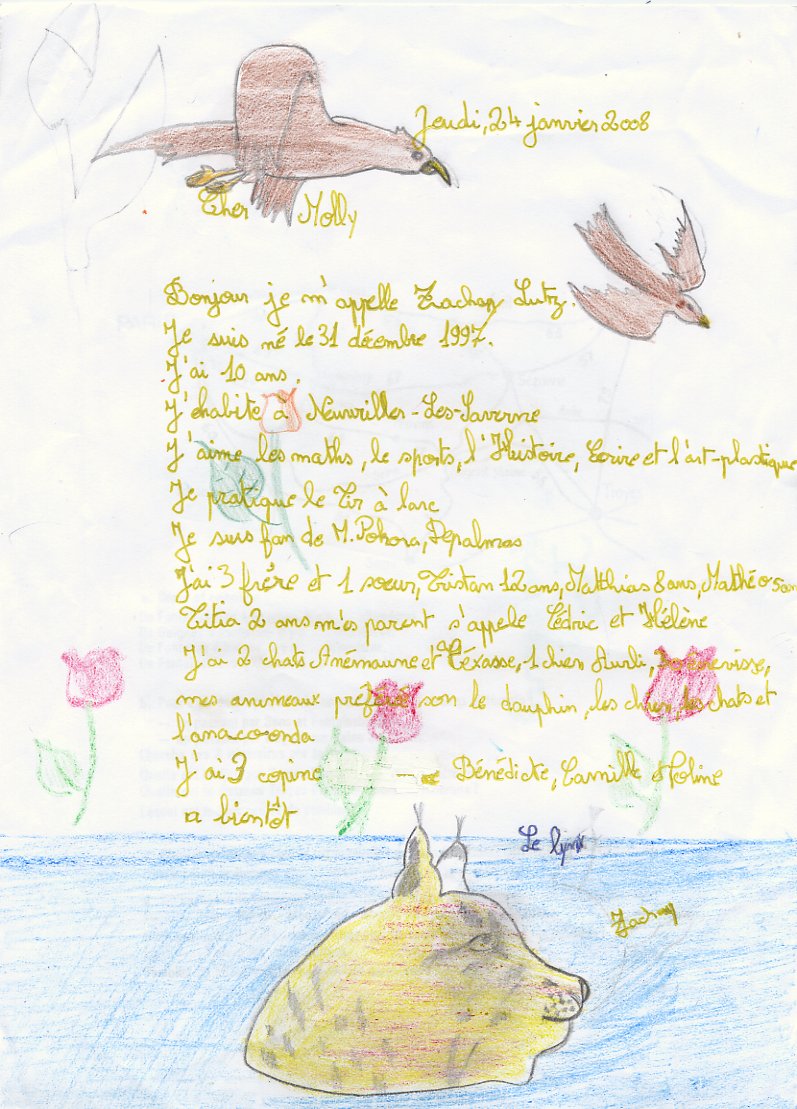 Jeudi, 24 janvier 2008
Cher Molly
Bonjour je m'appelle Zachary Lutz.
Je suis né le 31 décembre 1997.
J'ai 10 ans.
J'ehabite à Neuwiller-Les-Saverne
J'aime les maths, le sports, l'Histoire, Ecrire et l'art-plastique
Je pratique le Tir à larc
Je suis fan de M. Pokora, Depalmas
J'ai 3 frére et 1 soeur, Tristan 12 ans, Matthias 8 ans, Mathéo 5 an
Titia 2 ans m'es parent s'appele Cédric et Hélène
J'ai 2 chats Anémaune et Téxasse, 1 chien Aurli,
mes animeaux préféré son le dauphin, les chien, les chats et
l'anacoonda
J'ai 3 copine Bénédicte, Camille Moline
a bientôt
Le lynx
Zachary